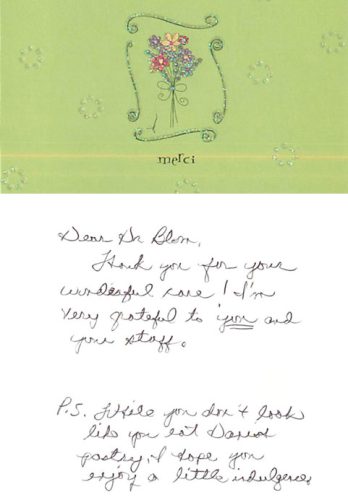 merci
Dear Dr Blom,
Thank you for your
wonderful care! I'm
very grateful to you and
your staff.
P.S. While you don't look
like you eat Danish
pastry, I hope you
enjoy a little indulgence.